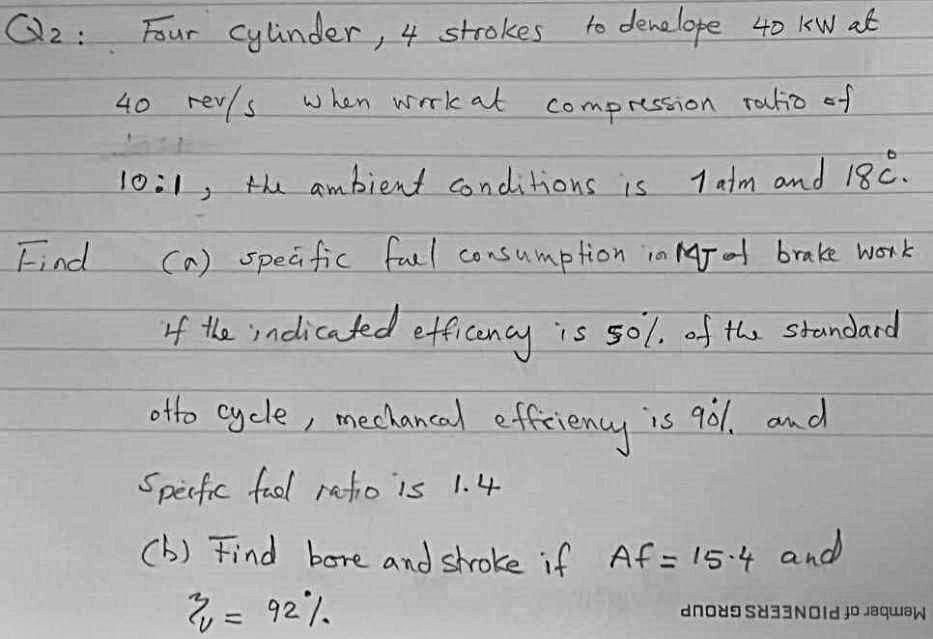 Q2: Four cylinder, 4 strokes to denelope 40 kW at
40 rev/s when work at compression ratio of
10:1, the ambient conditions is 1 atm and 18°C.
Find (a) specific fuel consumption in MJ of brake work
if the indicated efficency is 50% of the standard
otto cycle, mechancal efficiency is 90% and
Specfic fuel ratio is 1.4
(b) Find bore and stroke if Af = 15.4 and
ηv = 92%.
Member of PIONEERS GROUP